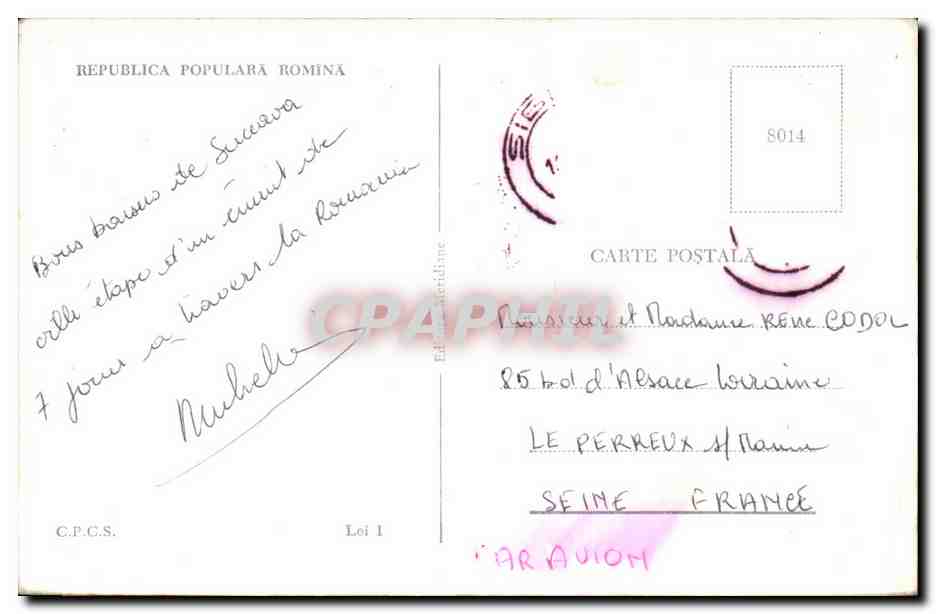 REPUBLICA POPULARĂ ROMÎNĂ
Bons baisers de Suceava
ville étape d'un circuit de
7 jours a travers la Romania
C.P.C.S.
Lei 1
Meridiane
CPAPHIL
SIG
8014
CARTE POȘTALĂ
Monsieur et Madame Rene CODOL
85 bd d'Alsace Lorraine
LE PERREUX s/Marne
SEINE FRANCE
PAR AVION